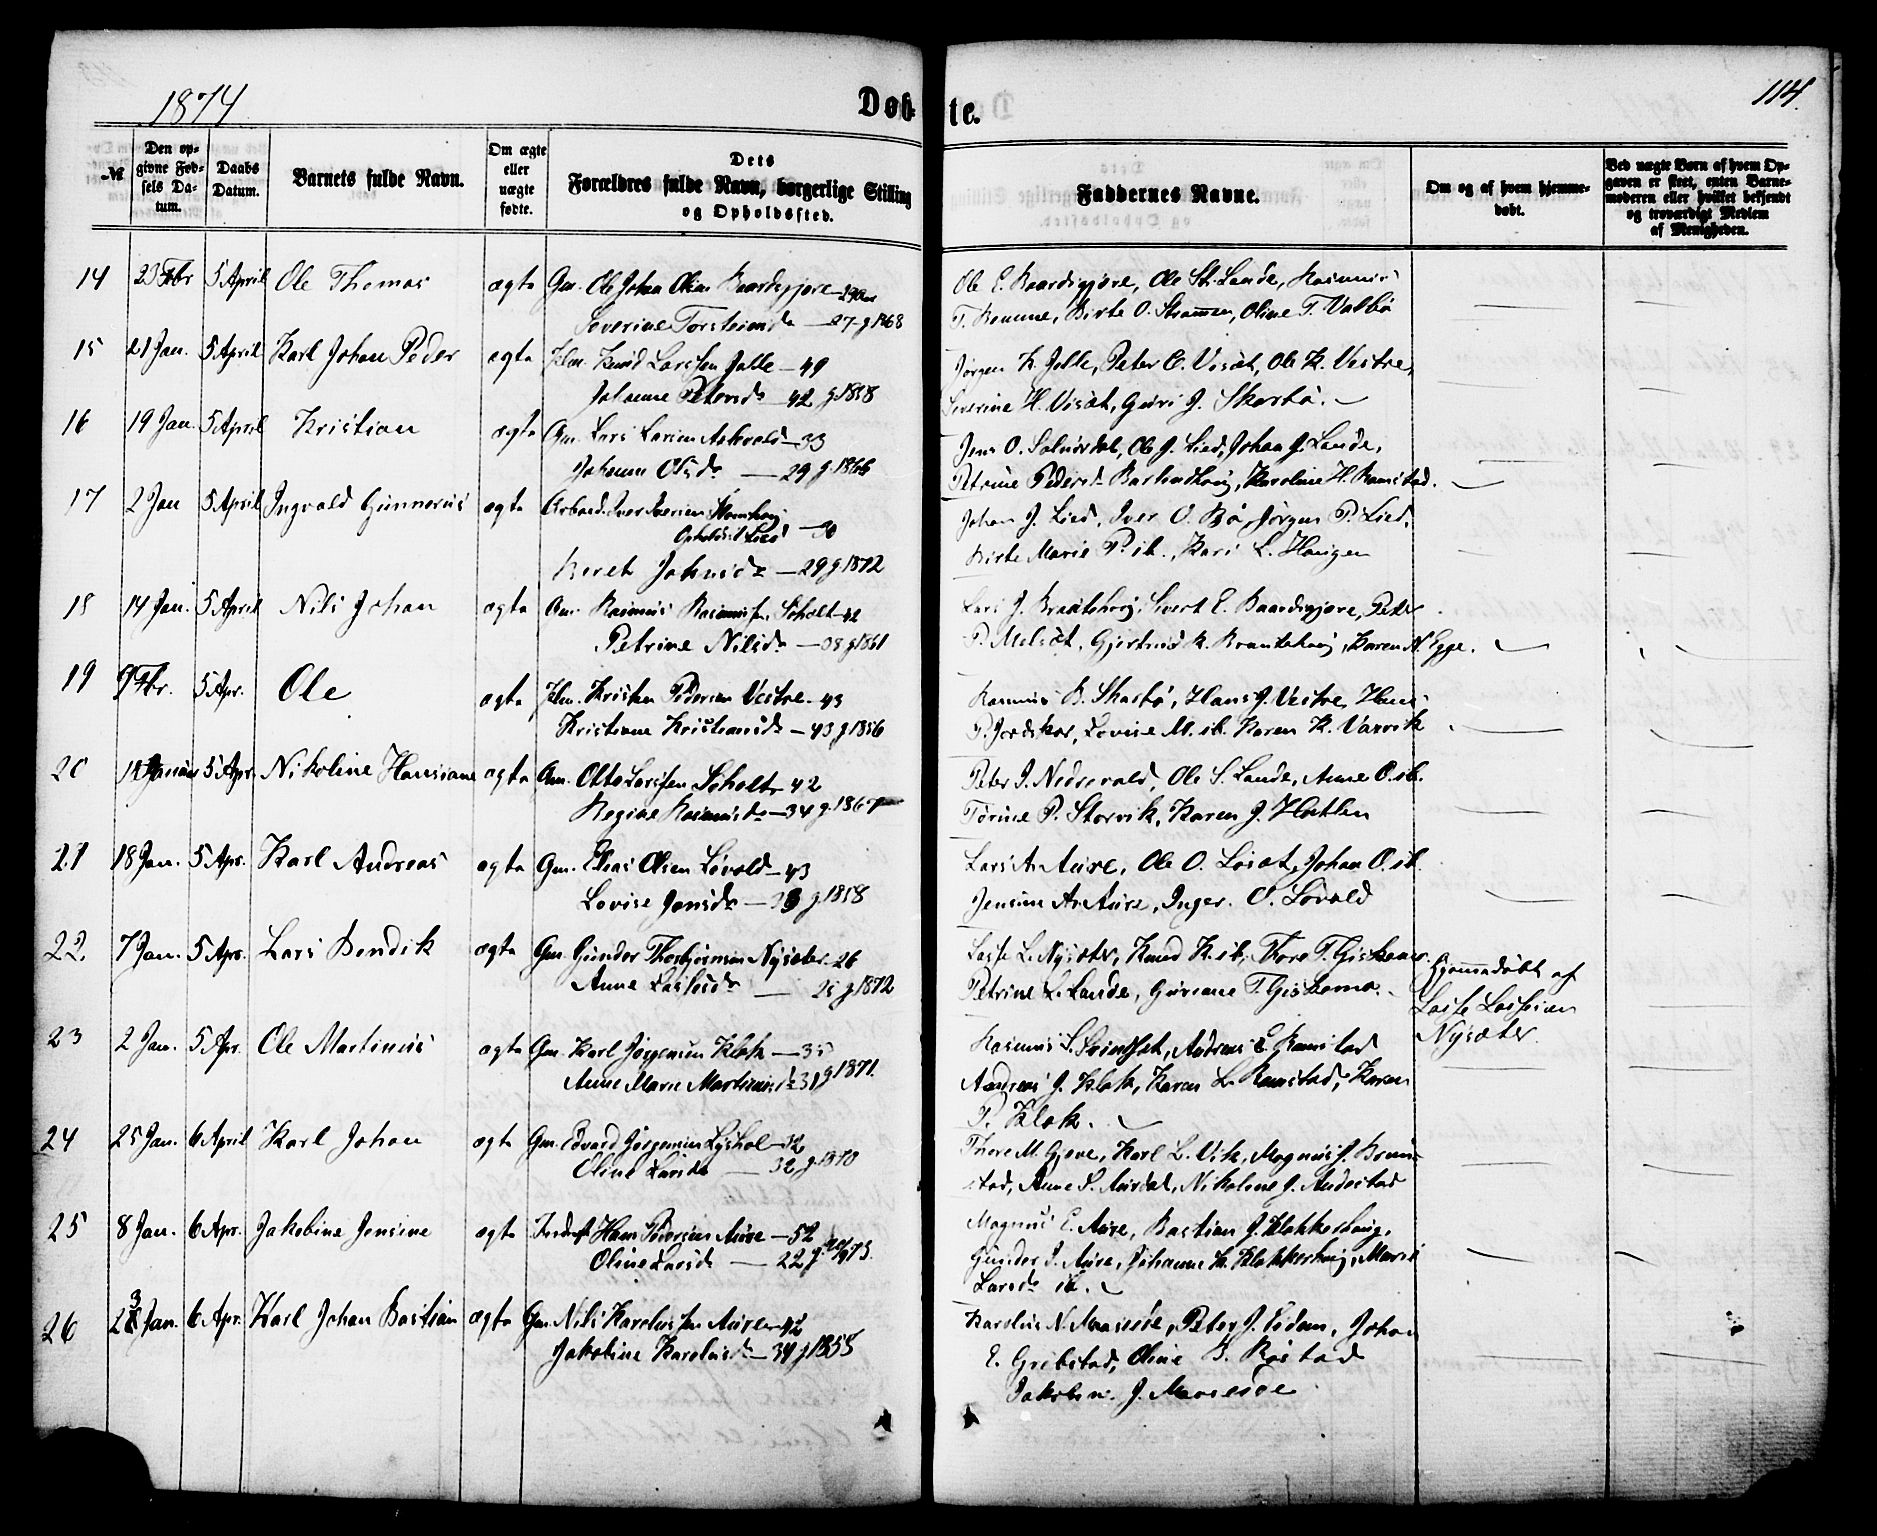 1874
Døb-
te.
114.
№
Den op-
givne Fød-
sels Da-
tum.
Daabs
Datum.
Barnets fulde Navn.
Om ægte
eller
uægte
fødte.
Dets
Forældres fulde Navn, borgerlige Stilling
og Opholdssted.
Faddernes Navne.
Om og af hvem hjemme-
døbt.
Ved uægte Børn af hvem Op-
gaven er skeet, enten Barne-
moderen eller hvilket bekjendt
og troværdigt Medlem
af Menigheden.
14 23 Fbr 5 April Ole Thomas ægte Gm. Ole Johan Olsen Baardsgjøre
Severine Torsteinsdr — 27 g 1868
Ole E. Baardsgjøre, Ole St. Lande, Rasmus
T. Remme, Birte O. Strømmen, Oline T. Valbø
15 21 Jan. 5 April Karl Johan Peder ægte Knud Larssen Jolle — 49
Johanne Petersdr — 42 g 1858
Jørgen K. Jolle, Peter E. Visæt, Ole K. Vestre,
Severine H. Visæt, Guri J. Skorbø.
16 19 Jan. 5 April Kristian ægte Gm. Lars Larsen Askvald — 33
Johanne Olsdr — 29 g 1866
Jens O. Solnørdal, Ole J. Lied, Johan J. Lande,
Petrine Pedersdr, Karoline H. Ramstad.
17 2 Jan 5 April Ingvald Gunnerus ægte Arbeid. Iver Iversen
Opholdst Lied — 30
Beret Johnsdr — 29 g 1872
Johan J. Lied, Iver O. Bø, Jørgen P. Lied,
Birte Marie P. ib., Kari L. Haugen
18 14 Jan. 5 April Nils Johan ægte Gm. Rasmus Rasmussen Scholt 42
Petrine Nilsdr — 38 g 1861
Lars J. Braatehoug, Sivert E. Baardsgjøre, Peter
P. Melsæt, Gjertrud K. Braatehoug, Karen N. Egge.
19 9 Fbr. 5 Apr. Ole ægte Kristen Pedersen Vestre — 43
Kristiane Kristiansdr — 43 g 1856
Rasmus B. Skorbø, Hans J. Vestre, Hans
P. Jordskar, Lovise M. ib. Karen K. Varvik
20 Januar 5 Apr. Nikoline Hansiane ægte Gm. Otto Larssen Scholt 42
Regine Rasmusdr — 34 g 1867
Peter J. Nedrevold, Ole S. Lande, Anne O. ib.
Tørine P. Storvik, Karen J. Hatlen
21 18 Jan. 5 Apr. Karl Andreas ægte Gm. Elias Olsen Løvold — 43
Lovise Jonsdr — 39 g 1858
Lars A. Aure, Ole O. Løsæt, Johan O. ib.
Jensine A. Aure, Inger O. Løvold
22. 7 Jan. 5 Apr. Lars Bendik ægte Gm. Gunder Thorbjørnsen Nysæter 26
Anne Lassesdr — 25 g 1872
Lasse L. Nysæter, Knud K. ib., Thore T. Giskemo
Petrine L. Lande, Guriane T. Giskemo.
Hjemmedøbt af
Lasse Lassesen
Nysæter.
23 2 Jan. 5 Apr. Ole Martinus ægte Gm. Karl Jørgensen Klok — 35
Anne Marie Martinusdr 31 g 1871.
Rasmus S. Svindset, Andreas E. Ramstad
Andreas J. Klok, Karen L. Ramstad, Karen
P. Klok.
24 25 Jan. 6 April Karl Johan ægte Gm. Edvard Jørgensen Lyshol 32
Oline Larsdr — 32 g 1870
Thore M. Gjære, Karl L. Vik, Magnus J. Brun-
stad, Anne S. Aursdal, Nikoline J. Andestad
25 8 Jan. 6 Apr. Jakobine Jensine ægte Inderst Hans Pedersen Aure — 52
Oline Larsdr — 22 g 1873.
Magnus E. Aure, Bastian J. Klokkerhoug,
Gunder J. Aure, Johanne K. Klokkerhoug, Marit
Larsdr ib.
26 23 Jan. 6 Apr. Karl Johan Bastian ægte Gm. Nils Karolussen Aure 42
Jakobine Karolusdr — 34 g 1858
Karolus N. Maaseøe, Peter J. Eidem, Johan
E. Grebstad, Oline B. Rostad
Jakobine J. Maaseøe